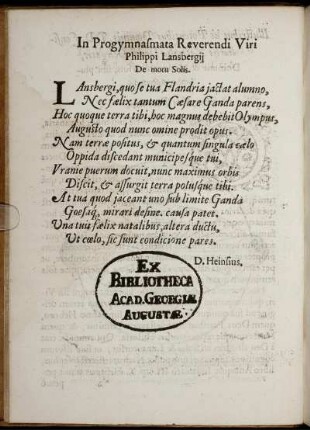 In Progymnasmata Reverendi Viri
Philippi Lansbergij
De motu Solis.
LAnsbergi, quo se tua Flandria jactat alumno,
Nec fælix tantum Cæsare Ganda parens,
Hoc quoque terra tibi, hoc magnus debebit Olympus,
Augusto quod nunc omine prodit opus.
Nam terræ positus, & quantum singula cælo
Oppida discedant municipesque tui,
Vranie puerum docuit, nunc maximus orbis
Discit, & assurgit terra polusque tibi.
At tua quod jaceant uno sub limite Ganda
Goesaq́, mirari desine. causa patet.
Una tuis fælix natalibus, altera ductu,
Ut cœlo, sic sunt condicione pares.
D. Heinsius.
EX
BIBLIOTHECA
ACAD. GEORGIÆ
AUGUSTÆ.